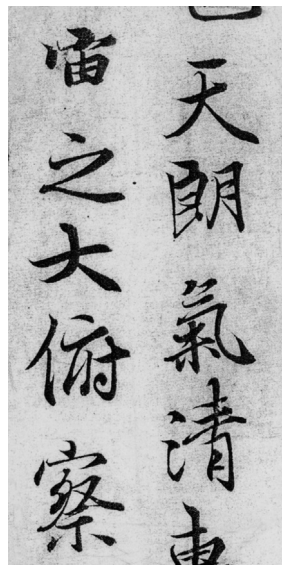 天朗氣清
宙之大俯察